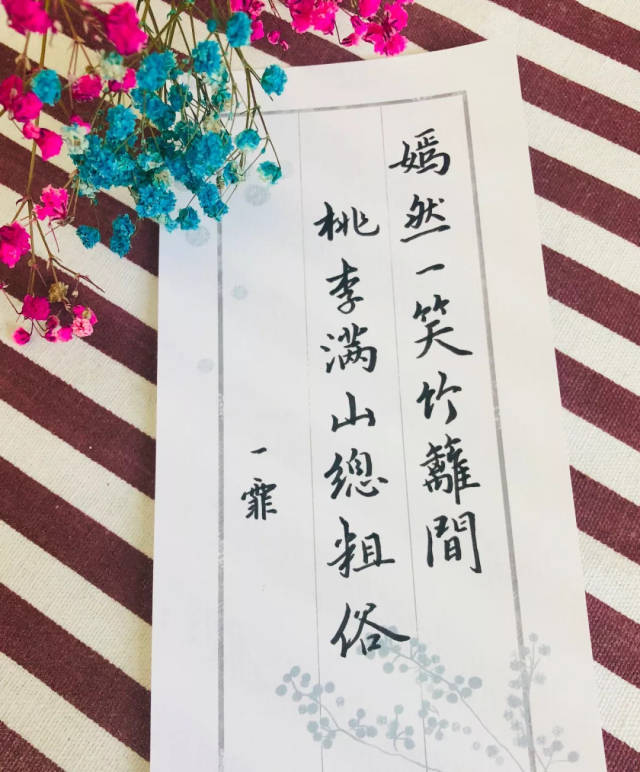 嫣然一笑竹籬間
桃李满山總粗俗
一霏